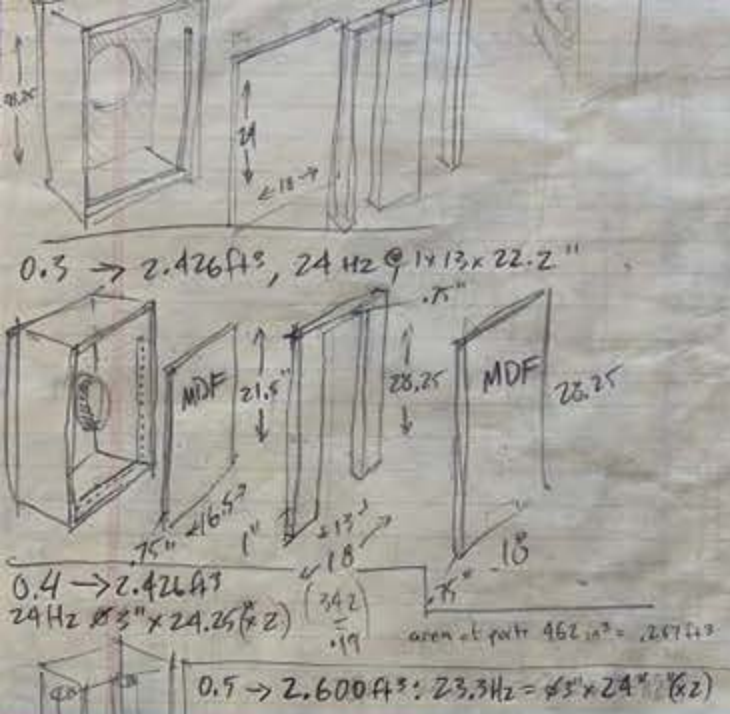 24
18
0.3 → 2.426ft³, 24 Hz @ 1x13x22.2"
.75"
MDF
21.5"
28.25
MDF
28.25
.75"
16.5
1"
13
18
18
.75"
0.4 → 2.426ft³
24Hz ø3"x24.25(x2)
(342
.19)
area of ports 462 in³ = .267ft³
0.5 → 2.600ft³: 23.3Hz = ø3"x24" (x2)